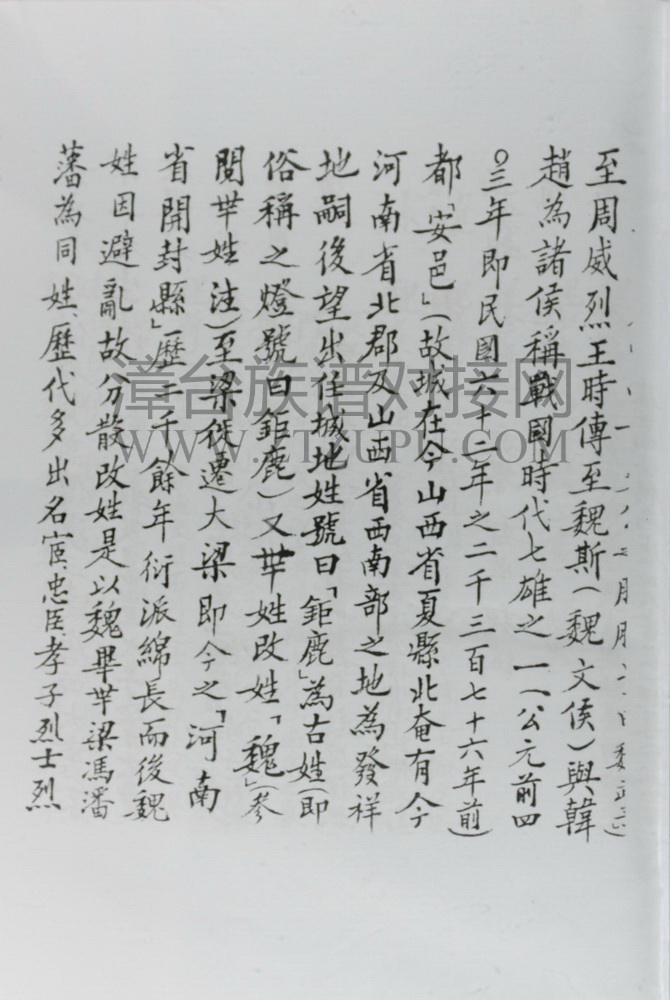 至周威烈王時傳至魏斯(魏文侯)與韓
趙為諸侯稱戰國時代七雄之一(公元前四
〇三年即民國六十二年之二千三百七十六年前)
都「安邑」(故城在今山西省夏縣北奄有今
河南省北郡及山西省西南部之地為發祥
地嗣後望出任城地姓號曰「鉅鹿」為古姓(即
俗稱之燈號曰鉅鹿)又芈姓改姓「魏」(參
閱芈姓注)至梁徙遷大梁即今之「河南
省開封縣」歷二千餘年衍派綿長而後魏
姓因避亂故分散改姓是以魏畢芈梁馮潘
藩為同姓、歷代多出名宦、忠臣、孝子烈士烈
漳台族谱对接网
WWW.ZTZUPU.COM